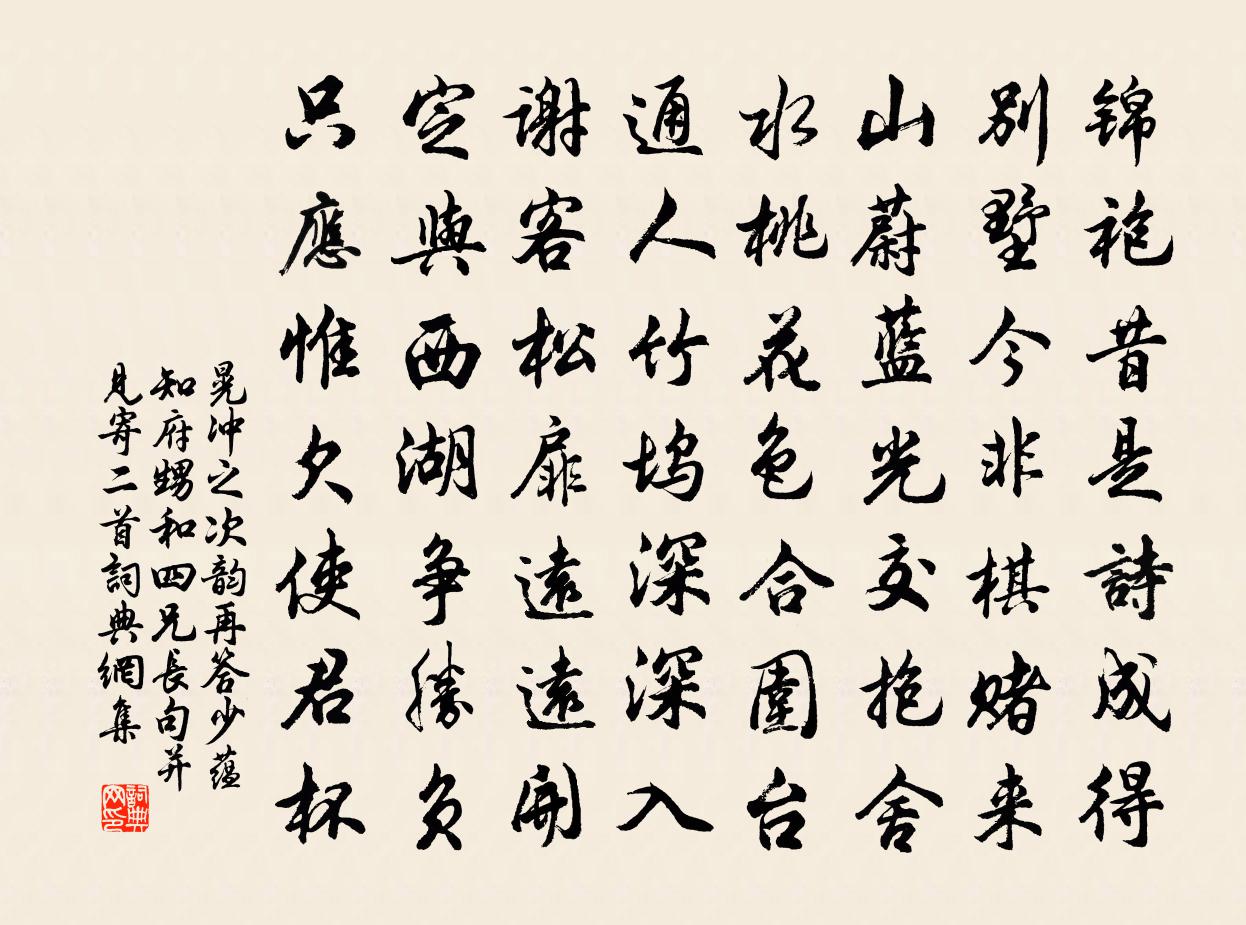 锦袍昔是詩成得
別墅今非棋赌来
山蔚蓝光交抱舍
水桃花色合圍台
通人竹坞深深入
谢客松扉遠遠開
定與西湖争勝负
只應惟欠使君杯
晁冲之次韵再答少蕴
知府甥和四兄長句并
見寄二首詞典網集
詞典网印